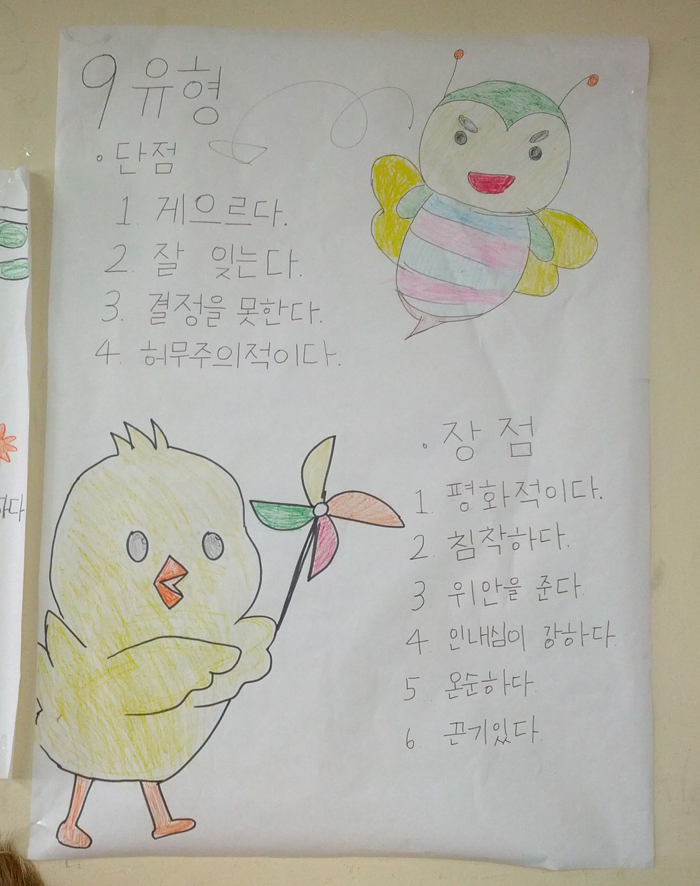 9 유형
• 단점
1 게으르다.
2. 잘 잊는다.
3. 결정을 못한다.
4. 허무주의적이다.
• 장점
1. 평화적이다.
2. 침착하다.
3 위안을 준다.
4 인내심이 강하다.
5. 온순하다
6 끈기있다.
하다